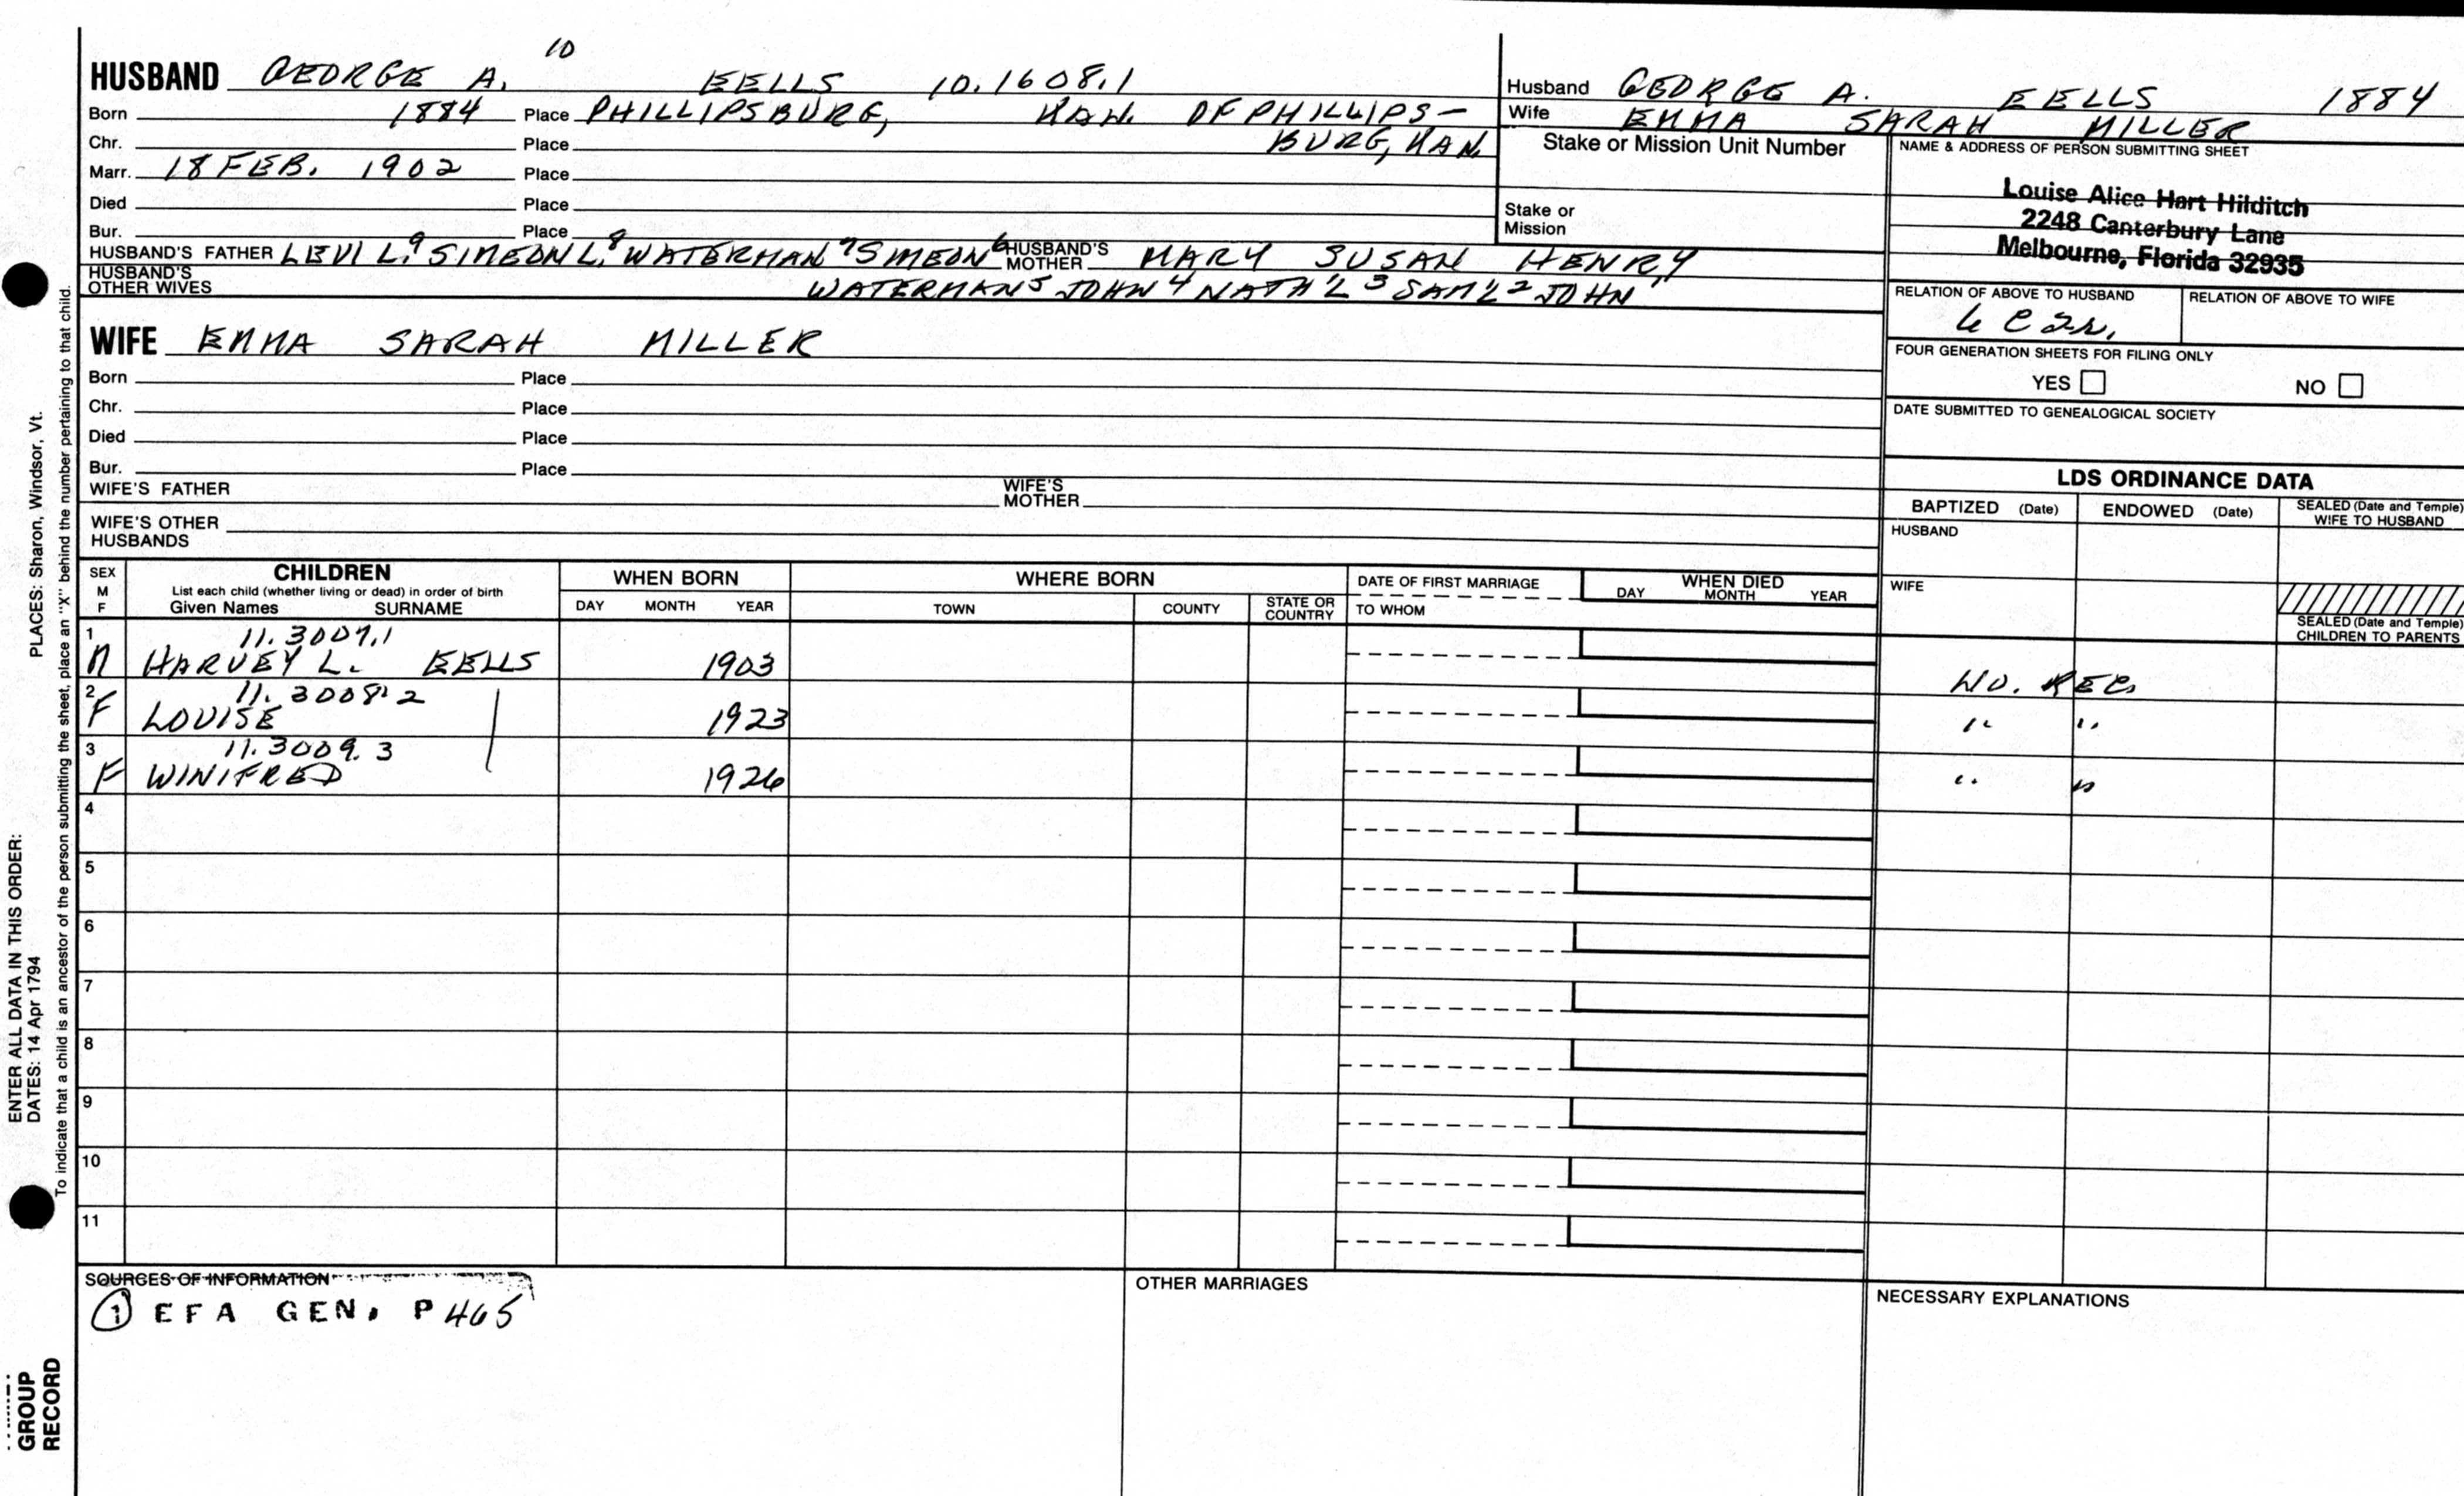 HUSBAND GEORGE A. 10 EELLS 10.1608.1
Born 1884 Place PHILLIPSBURG, KAN. OF PHILLIPS-
Chr. Place BURG, KAN.
Marr. 18 FEB. 1902 Place
Died Place
Bur. Place
HUSBAND'S FATHER LEVI L.9 SIMEON L.8 WATERMAN 7 SIMEON 6 HUSBAND'S MOTHER MARY SUSAN HENRY
HUSBAND'S OTHER WIVES WATERMAN 5 JOHN 4 NATH'L 3 SAM'L 2 JOHN 1
WIFE EMMA SARAH MILLER
Born Place
Chr. Place
Died Place
Bur. Place
WIFE'S FATHER WIFE'S MOTHER
WIFE'S OTHER HUSBANDS
Husband GEORGE A. EELLS 1884
Wife EMMA SARAH MILLER
Stake or Mission Unit Number
Stake or Mission
NAME & ADDRESS OF PERSON SUBMITTING SHEET
Louise Alice Hart Hilditch
2248 Canterbury Lane
Melbourne, Florida 32935
RELATION OF ABOVE TO HUSBAND RELATION OF ABOVE TO WIFE
FOUR GENERATION SHEETS FOR FILING ONLY
YES NO
DATE SUBMITTED TO GENEALOGICAL SOCIETY
LDS ORDINANCE DATA
BAPTIZED (Date) ENDOWED (Date) SEALED (Date and Temple) WIFE TO HUSBAND
HUSBAND
WIFE
SEALED (Date and Temple) CHILDREN TO PARENTS
SEX M F
CHILDREN
List each child (whether living or dead) in order of birth
Given Names SURNAME
WHEN BORN
DAY MONTH YEAR
WHERE BORN
TOWN COUNTY STATE OR COUNTRY
DATE OF FIRST MARRIAGE
TO WHOM
WHEN DIED
DAY MONTH YEAR
1 11.3007.1
M HARVEY L. EELLS 1903 NO. REC.
2 11.3008.2
F LOUISE 1923 " "
3 11.3009.3
F WINIFRED 1926 " "
4
5
6
7
8
9
10
11
SOURCES OF INFORMATION
1 EFA GEN. P 465
OTHER MARRIAGES
NECESSARY EXPLANATIONS
ENTER ALL DATA IN THIS ORDER:
DATES: 14 Apr 1794 PLACES: Sharon, Windsor, Vt.
To indicate that a child is an ancestor of the person submitting the sheet, place an "X" behind the number pertaining to that child.
GROUP
RECORD